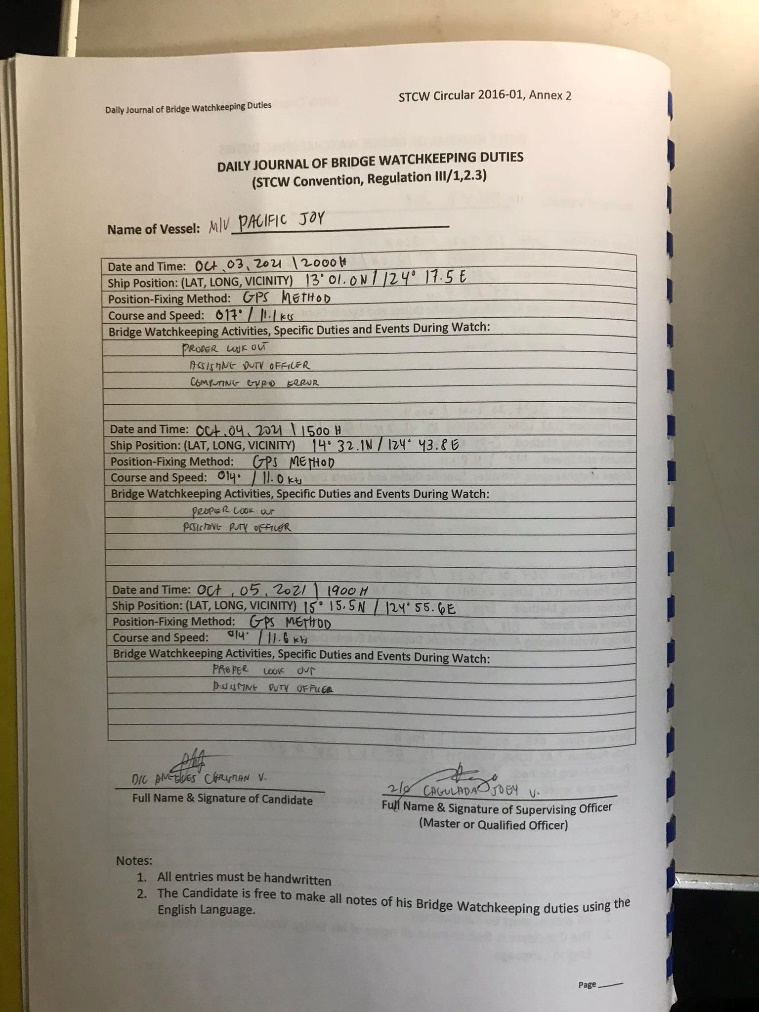 Daily Journal of Bridge Watchkeeping Duties
STCW Circular 2016-01, Annex 2
DAILY JOURNAL OF BRIDGE WATCHKEEPING DUTIES
(STCW Convention, Regulation III/1,2.3)
Name of Vessel: M/V PACIFIC JOY
Date and Time: Oct. 03, 2021 | 2000H
Ship Position: (LAT, LONG, VICINITY) 13° 01.0 N / 124° 17.5 E
Position-Fixing Method: GPS METHOD
Course and Speed: 017° / 11.1 kts
Bridge Watchkeeping Activities, Specific Duties and Events During Watch:
PROPER LOOK OUT
ASSISTING DUTY OFFICER
COMPUTING GYRO ERROR
Date and Time: Oct. 04, 2021 | 1500 H
Ship Position: (LAT, LONG, VICINITY) 14° 32.1N / 124° 43.8 E
Position-Fixing Method: GPS METHOD
Course and Speed: 014° / 11.0 kts
Bridge Watchkeeping Activities, Specific Duties and Events During Watch:
PROPER LOOK OUT
ASSISTING DUTY OFFICER
Date and Time: Oct, 05, 2021 | 1900 H
Ship Position: (LAT, LONG, VICINITY) 15° 15.5 N / 124° 55.6E
Position-Fixing Method: GPS METHOD
Course and Speed: 014° / 11.6 kts
Bridge Watchkeeping Activities, Specific Duties and Events During Watch:
PROPER LOOK OUT
ASSISTING DUTY OFFICER
D/C V.
2/O CAGULADA JOEY V.
Full Name & Signature of Candidate
Full Name & Signature of Supervising Officer
(Master or Qualified Officer)
Notes:
1. All entries must be handwritten
2. The Candidate is free to make all notes of his Bridge Watchkeeping duties using the
English Language.
Page